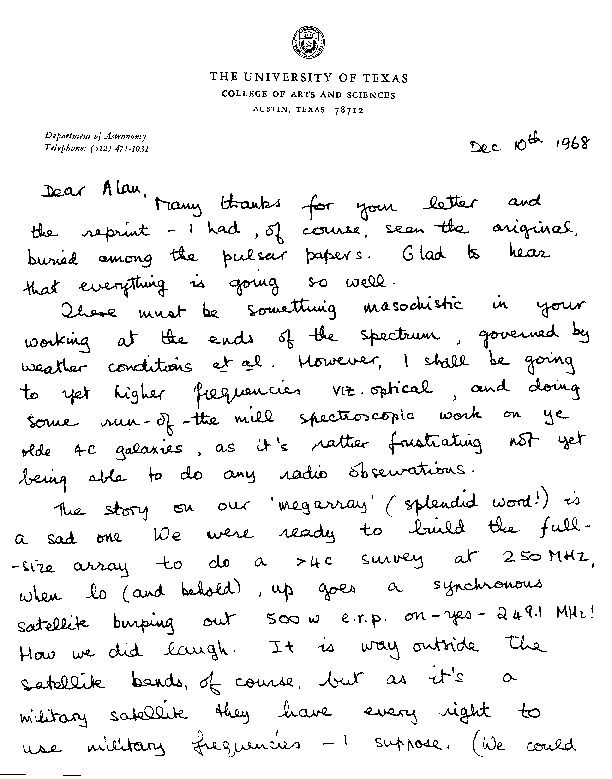 THE UNIVERSITY OF TEXAS
COLLEGE OF ARTS AND SCIENCES
AUSTIN, TEXAS 78712
Department of Astronomy
Telephone: (512) 471-1031
Dec 10th 1968
Dear Alan,
Many thanks for your letter and
the reprint - I had, of course, seen the original,
buried among the pulsar papers. Glad to hear
that everything is going so well.
There must be something masochistic in your
working at the ends of the spectrum, governed by
weather conditions et al. However, I shall be going
to yet higher frequencies viz. optical, and doing
some run-of-the mill spectroscopic work on ye
olde 4C galaxies, as it's rather frustrating not yet
being able to do any radio observations.
The story on our 'megarray' (splendid word!) is
a sad one We were ready to build the full-
-size array to do a >4C survey at 250 MHz,
when lo (and behold), up goes a synchronous
satellite burping out 500 w e.r.p. on - yes - 249.1 MHz!
How we did laugh. It is way outside the
satellite bands, of course, but as it's a
military satellite they have every right to
use military frequencies - I suppose. (We could